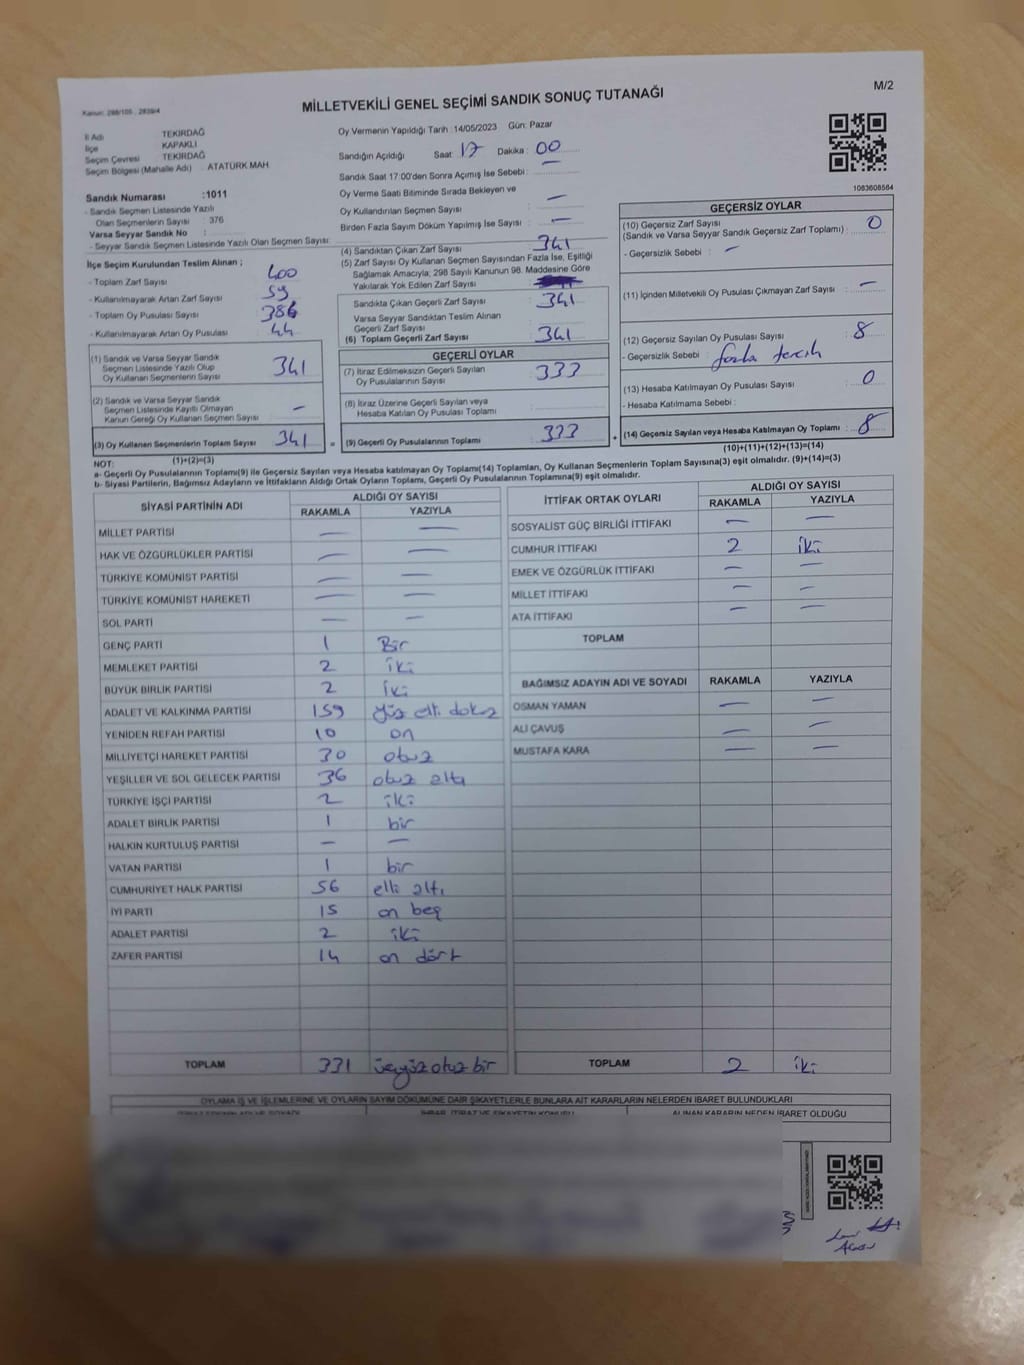 Kanun: 298/105 . 2839/4
MİLLETVEKİLİ GENEL SEÇİMİ SANDIK SONUÇ TUTANAĞI
M/2
İl Adı TEKİRDAĞ
İlçe KAPAKLI
Seçim Çevresi TEKİRDAĞ
Seçim Bölgesi (Mahalle Adı) : ATATÜRK MAH.
Sandık Numarası :1011
- Sandık Seçmen Listesinde Yazılı
Olan Seçmenlerin Sayısı : 376
Varsa Seyyar Sandık No :
- Seyyar Sandık Seçmen Listesinde Yazılı Olan Seçmen Sayısı:
İlçe Seçim Kurulundan Teslim Alınan ;
- Toplam Zarf Sayısı 400
- Kullanılmayarak Artan Zarf Sayısı 59
- Toplam Oy Pusulası Sayısı 386
- Kullanılmayarak Artan Oy Pusulası 44
(1) Sandık ve Varsa Seyyar Sandık
Seçmen Listesinde Yazılı Olup
Oy Kullanan Seçmenlerin Sayısı 341
(2) Sandık ve Varsa Seyyar Sandık
Seçmen Listesinde Kayıtlı Olmayan
Kanun Gereği Oy Kullanan Seçmen Sayısı –
(3) Oy Kullanan Seçmenlerin Toplam Sayısı 341
(1)+(2)=(3)
Oy Vermenin Yapıldığı Tarih :14/05/2023 Gün: Pazar
Sandığın Açıldığı Saat: 17 Dakika : 00
Sandık Saat 17:00'den Sonra Açılmış İse Sebebi : —
Oy Verme Saati Bitiminde Sırada Bekleyen ve
Oy Kullandırılan Seçmen Sayısı : —
Birden Fazla Sayım Döküm Yapılmış İse Sayısı : —
(4) Sandıktan Çıkan Zarf Sayısı 341
(5) Zarf Sayısı Oy Kullanan Seçmen Sayısından Fazla İse, Eşitliği
Sağlamak Amacıyla; 298 Sayılı Kanunun 98. Maddesine Göre
Yakılarak Yok Edilen Zarf Sayısı
Sandıkta Çıkan Geçerli Zarf Sayısı 341
Varsa Seyyar Sandıktan Teslim Alınan
Geçerli Zarf Sayısı
(6) Toplam Geçerli Zarf Sayısı 341
GEÇERLİ OYLAR
(7) İtiraz Edilmeksizin Geçerli Sayılan
Oy Pusulalarının Sayısı 333
(8) İtiraz Üzerine Geçerli Sayılan veya
Hesaba Katılan Oy Pusulası Toplamı
= (9) Geçerli Oy Pusulalarının Toplamı 333 +
1083608584
GEÇERSİZ OYLAR
(10) Geçersiz Zarf Sayısı
(Sandık ve Varsa Seyyar Sandık Geçersiz Zarf Toplamı) : 0
- Geçersizlik Sebebi : –
(11) İçinden Milletvekili Oy Pusulası Çıkmayan Zarf Sayısı : —
(12) Geçersiz Sayılan Oy Pusulası Sayısı : 8
- Geçersizlik Sebebi : fazla tercih
(13) Hesaba Katılmayan Oy Pusulası Sayısı : 0
- Hesaba Katılmama Sebebi :
(14) Geçersiz Sayılan veya Hesaba Katılmayan Oy Toplamı : 8
(10)+(11)+(12)+(13)=(14)
NOT:
a- Geçerli Oy Pusulalarının Toplamı(9) ile Geçersiz Sayılan veya Hesaba katılmayan Oy Toplamı(14) Toplamları, Oy Kullanan Seçmenlerin Toplam Sayısına(3) eşit olmalıdır. (9)+(14)=(3)
b- Siyasi Partilerin, Bağımsız Adayların ve İttifakların Aldığı Ortak Oyların Toplamı, Geçerli Oy Pusulalarının Toplamına(9) eşit olmalıdır.
SİYASİ PARTİNİN ADI ALDIĞI OY SAYISI
RAKAMLA YAZIYLA
MİLLET PARTİSİ — —
HAK VE ÖZGÜRLÜKLER PARTİSİ — —
TÜRKİYE KOMÜNİST PARTİSİ — —
TÜRKİYE KOMÜNİST HAREKETİ — —
SOL PARTİ — —
GENÇ PARTİ 1 Bir
MEMLEKET PARTİSİ 2 iki
BÜYÜK BİRLİK PARTİSİ 2 İki
ADALET VE KALKINMA PARTİSİ 159 yüz elli dokuz
YENİDEN REFAH PARTİSİ 10 on
MİLLİYETÇİ HAREKET PARTİSİ 30 otuz
YEŞİLLER VE SOL GELECEK PARTİSİ 36 otuz altı
TÜRKİYE İŞÇİ PARTİSİ 2 iki
ADALET BİRLİK PARTİSİ 1 bir
HALKIN KURTULUŞ PARTİSİ — —
VATAN PARTİSİ 1 bir
CUMHURİYET HALK PARTİSİ 56 elli altı
İYİ PARTİ 15 on beş
ADALET PARTİSİ 2 iki
ZAFER PARTİSİ 14 on dört
TOPLAM 331 üçyüz otuz bir
İTTİFAK ORTAK OYLARI ALDIĞI OY SAYISI
RAKAMLA YAZIYLA
SOSYALİST GÜÇ BİRLİĞİ İTTİFAKI — —
CUMHUR İTTİFAKI 2 iki
EMEK VE ÖZGÜRLÜK İTTİFAKI — —
MİLLET İTTİFAKI — —
ATA İTTİFAKI — —
TOPLAM
BAĞIMSIZ ADAYIN ADI VE SOYADI RAKAMLA YAZIYLA
OSMAN YAMAN — —
ALİ ÇAVUŞ — —
MUSTAFA KARA — —
TOPLAM 2 iki
OYLAMA İŞ VE İŞLEMLERİNE VE OYLARIN SAYIM DÖKÜMÜNE DAİR ŞİKAYETLERLE BUNLARA AİT KARARLARIN NELERDEN İBARET BULUNDUKLARI
ALINAN KARARIN NEDEN İBARET OLDUĞU